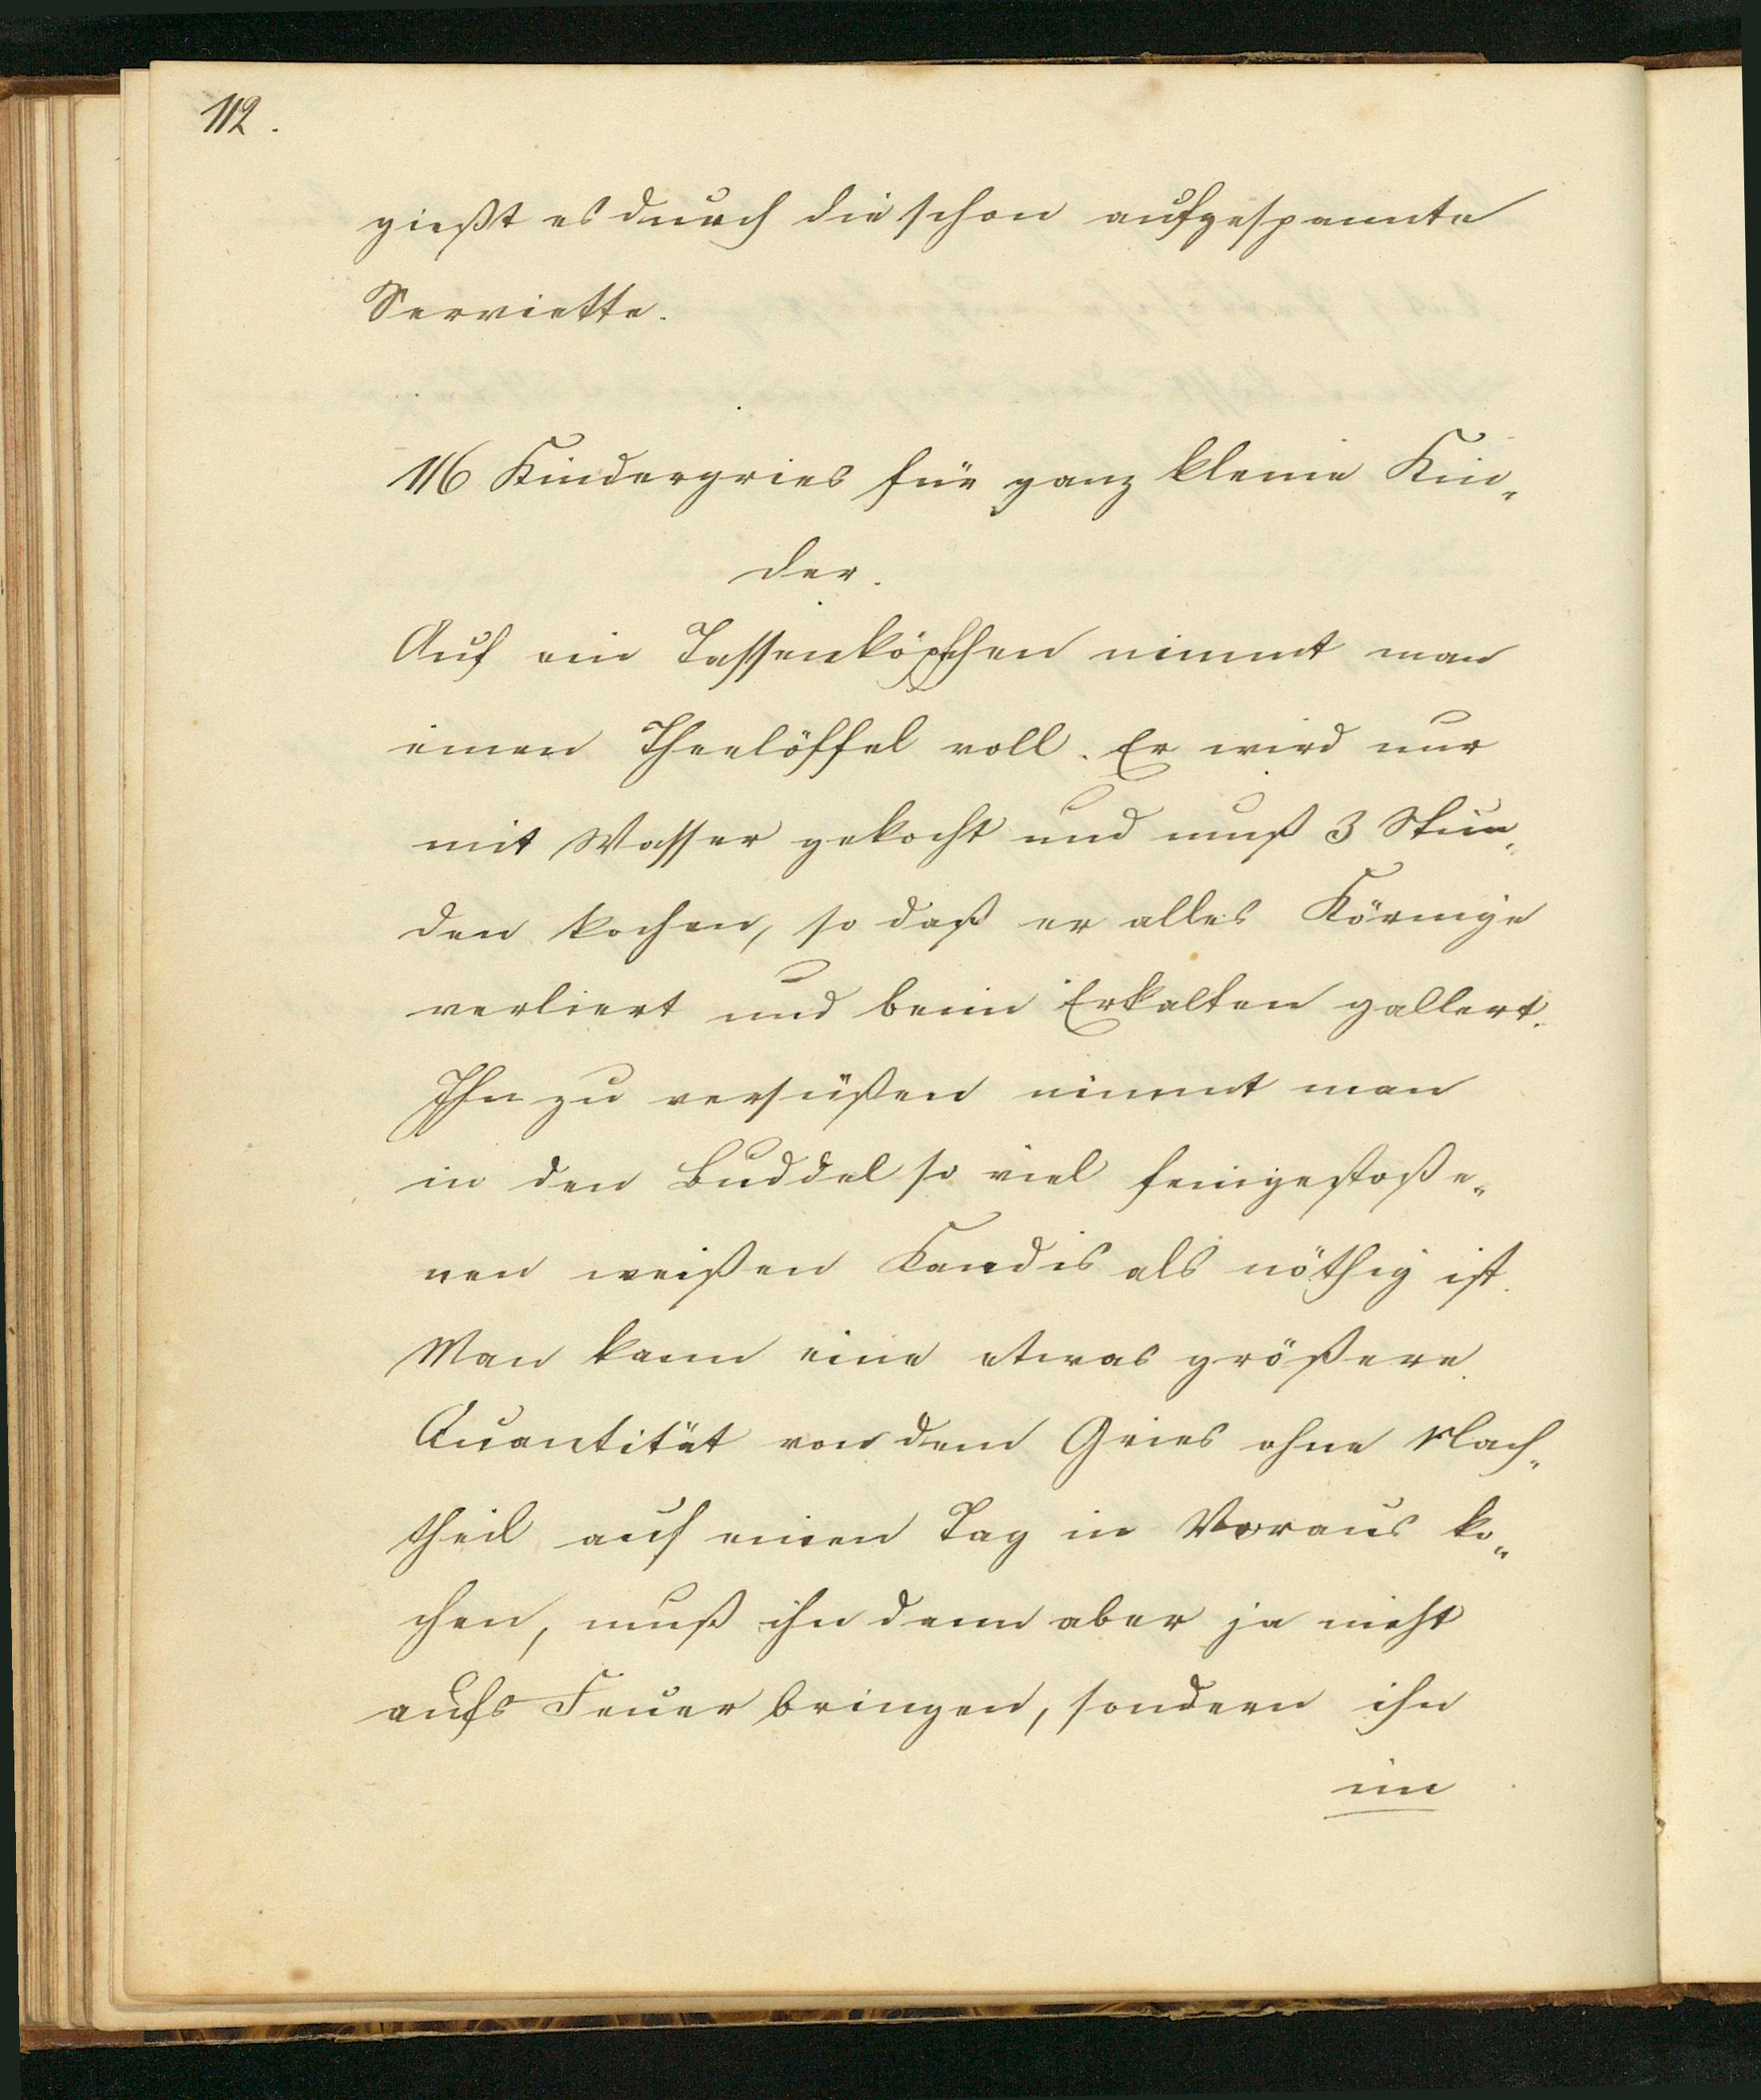 112.
gießt es durch die schon aufgespannte
Serviette.
116 Kindergries für ganz kleine Kin„
der.
Auf ein Tassenköpfchen nimmt man
einen Theelöffel voll. Er wird nur
mit Wasser gekocht und muß 3 Stun„
den kochen, so daß er alles Körnige
verliert und beim Erkalten gallert.
Ihn zu versüßen nimmt man
in den Buddel so viel feingestoße„
nen weißen Kandis als nöthig ist.
Man kann eine etwas größere
Quantität von dem Gries ohne Nach„
theil auf einen Tag in Voraus ko„
chen, muß ihn dann aber ja nicht
aufs Feuer bringen, sondern ihn
im